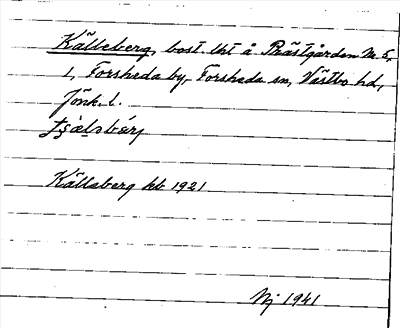 Källeberg, bost. lht å Prästgården M. 5,
1, Forsheda by, Forsheda sn, Västbo hd,
Jönk. l.
Källeberg kb 1921
Nj 1941